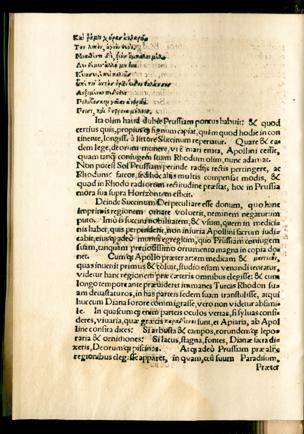 Ita olim haud dubie Prussiam pontus habuit: & quod
certius quis, propiusq; signum capiat, quim quod hodie in con
tinente, longiss. à littore Succinum reperatur. Quare & ea
dem lege, de orum munere, vt è mari enata, Apollini cessit,
quam tanq; coniugem suam Rhodum olim, nunc adamat.
Non potest Sol Prussiam perinde radijs rectis perringere, ac
Rhodum: fateor, sed id alijs multis compensat modis, &
quod in Rhodo radiorum rectitudine præstat, hoc in Prussia
mora sua supra Horizontem efficit.
Deinde Succinum Dei peculiare esse donum, quo hanc
imprimis regionem ornare voluerit, neminem negaturum
puto. Imò si succini nobilitatem, & vsum, quem in medici-
nis habet, quis perpenderit, non iniuria Apollini sacrum iudi-
cabit, eiusq; adeò munus egregium, quo Prussiam coniugem
suam, tanquam preciosissimo ornamento magna in copia do
net. Cumq; Apollo præter artem medicam &
quas inuenit primus & coluit, studio etiam venandi teneatur,
videtur hanc regionem præ cæteris omnibus elegisse: & cum
longo tempore ante præuideret immanes Turcas Rhodon su-
am deuastaturos, in has partes sedem suam transtulisse, atq; i
huc cum Diana sorore commigrasse, vero non videtur absimi
le. In quascumq; enim partes oculos vertas, si syluas consi-
deres, viuaria, quæ græcis sunt, et Apiaria, ab Apol
line consita dices: Si arbusta & campos, eorundemq; lepo-
raria & ornithones: Si lacus, stagna, fontes, Dianæ sacra di-
xeris, Deorumq; piscinas. Atq; adeò Prussiam præ alijs
regionibus elegisse apparet, in quam, ceu suum Paradisum,
Præter